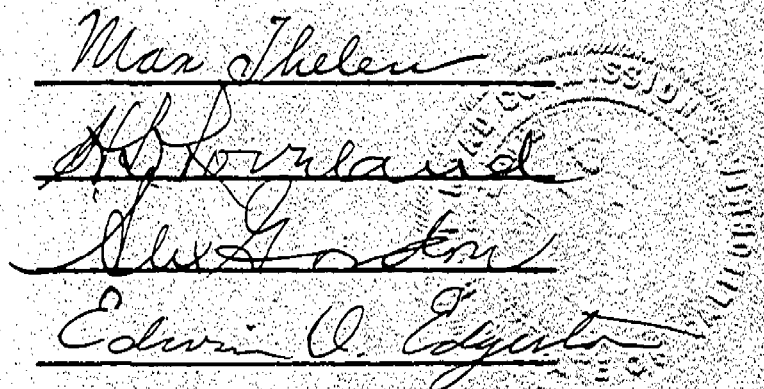 Max Thelen
H. D. Loveland
Alex Gordon
Edwin O. Edgerton